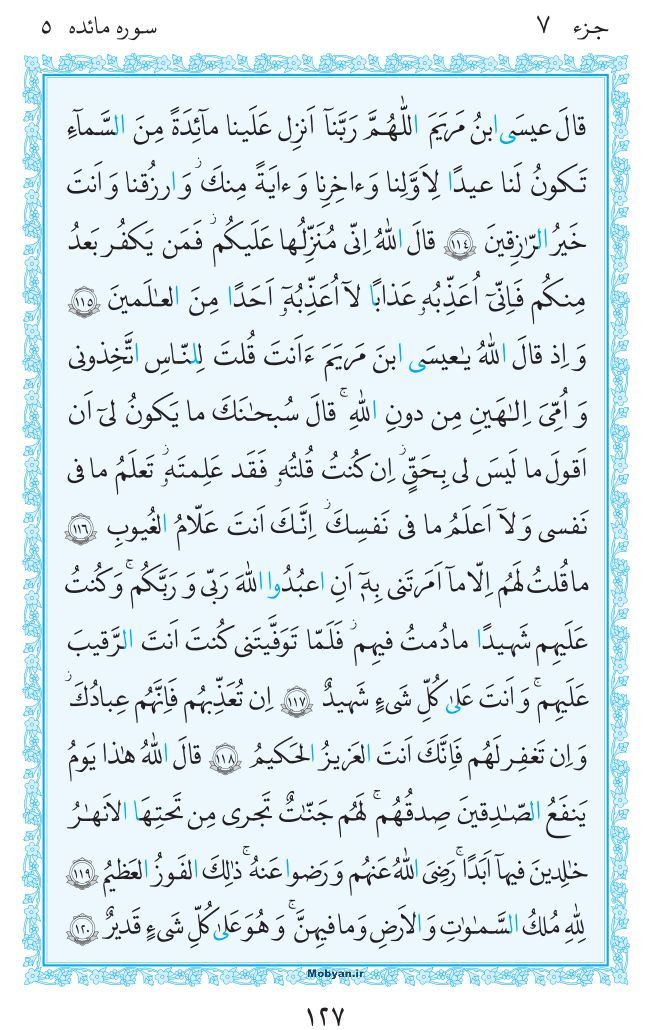 جزء ۷
سوره مائده ۵
قالَ عیسَی ابنُ مَریَمَ اللّٰهُمَّ رَبَّنآ اَنزِل عَلَینا مآئِدَةً مِنَ السَّمآءِ
تَکونُ لَنا عیدًا لِاَوَّلِنا وَءاخِرِنا وَءایَةً مِنكَ ۖ وَارزُقنا وَاَنتَ
خَیرُ الرّازِقینَ ﴿١١٤﴾ قالَ اللّٰهُ اِنّی مُنَزِّلُها عَلَیکُم ۖ فَمَن یَکفُر بَعدُ
مِنکُم فَاِنّیٓ اُعَذِّبُهٗ عَذابًا لآ اُعَذِّبُهٗٓ اَحَدًا مِنَ العٰلَمینَ ﴿١١٥﴾
وَاِذ قالَ اللّٰهُ یٰعیسَی ابنَ مَریَمَ ءَاَنتَ قُلتَ لِلنّاسِ اتَّخِذونی
وَ اُمِّیَ اِلٰهَینِ مِن دونِ اللّٰهِ ۚ قالَ سُبحٰنَكَ ما یَکونُ لیٓ اَن
اَقولَ ما لَیسَ لی بِحَقٍّ ۚ اِن کُنتُ قُلتُهٗ فَقَد عَلِمتَهٗ ۚ تَعلَمُ ما فی
نَفسی وَلآ اَعلَمُ ما فی نَفسِكَ ۚ اِنَّكَ اَنتَ عَلّامُ الغُیوبِ ﴿١١٦﴾
ما قُلتُ لَهُم اِلّا مآ اَمَرتَنی بِهٖٓ اَنِ اعبُدُوا اللّٰهَ رَبّی وَ رَبَّکُم ۚ وَکُنتُ
عَلَیهِم شَهیدًا ما دُمتُ فیهِم ۖ فَلَمّا تَوَفَّیتَنی کُنتَ اَنتَ الرَّقیبَ
عَلَیهِم ۚ وَاَنتَ عَلیٰ کُلِّ شَیءٍ شَهیدٌ ﴿١١٧﴾ اِن تُعَذِّبهُم فَاِنَّهُم عِبادُكَ ۖ
وَاِن تَغفِر لَهُم فَاِنَّكَ اَنتَ العَزیزُ الحَکیمُ ﴿١١٨﴾ قالَ اللّٰهُ هٰذا یَومُ
یَنفَعُ الصّٰدِقینَ صِدقُهُم ۚ لَهُم جَنّٰتٌ تَجری مِن تَحتِهَا الاَنهٰرُ
خٰلِدینَ فیهآ اَبَدًا ۚ رَضِیَ اللّٰهُ عَنهُم وَ رَضوا عَنهُ ۚ ذٰلِكَ الفَوزُ العَظیمُ ﴿١١٩﴾
لِلّٰهِ مُلكُ السَّمٰوٰتِ وَ الاَرضِ وَما فیهِنَّ ۚ وَ هُوَ عَلیٰ کُلِّ شَیءٍ قَدیرٌ ﴿١٢٠﴾
Mobyan.ir
۱۲۷